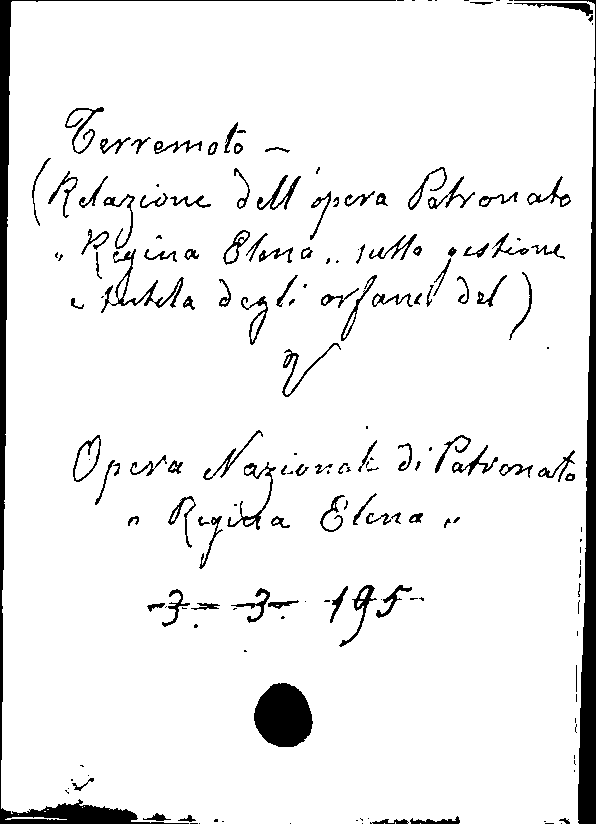 Terremoto —
(Relazione dell'opera Patronato
"Regina Elena" sulla gestione
e tutela degli orfani del)
V
Opera Nazionale di Patronato
"Regina Elena"
3. 3. 195